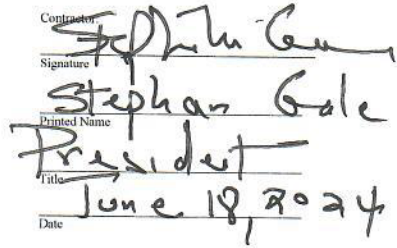 Contractor:
Signature
Stephan Gale
Printed Name
President
Title
June 18, 2024
Date